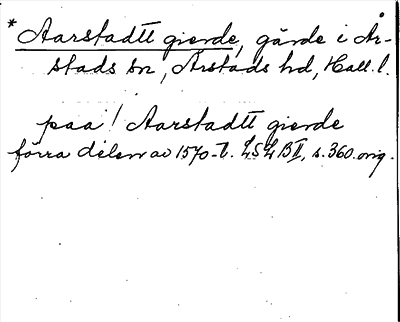 * Aarstadtt gierde, gärde i År-
stads sn, Årstads hd, Hall. l.
paa! Aarstadtt gierde
förra delen av 1570-t. LSLB II, s. 360. orig.